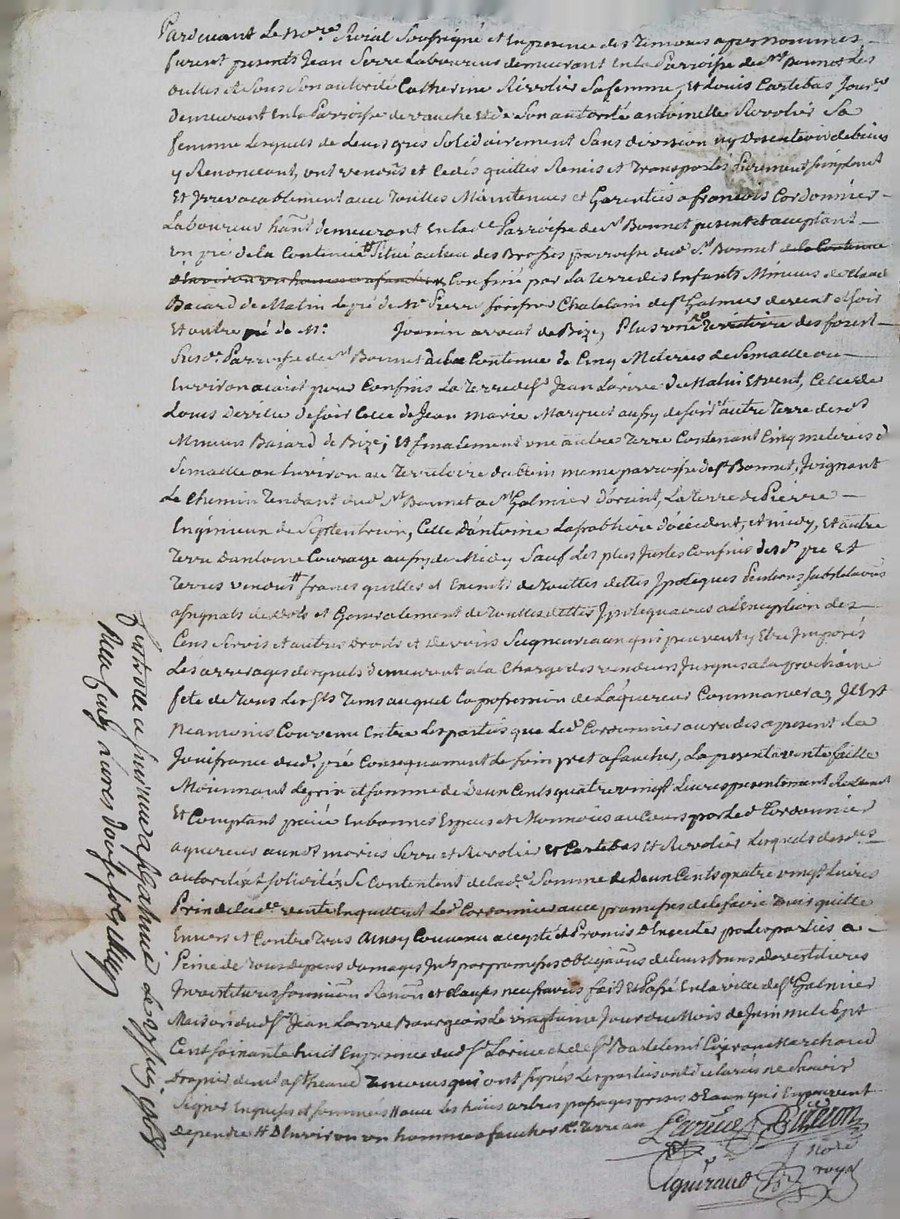 Pardevant Le no.re Roial Soussigné et En presence des temoins apres nommes
furent presents Jean Serre Laboureur demeurant En la Parroisse de St Bonnet Les
oulles et Sous Son autorité Catherine Révolier Sa femme, Et Louis Cartebas Jour.er
Demeurant En la Parroisse de vauche Et de Son autorité antoinette Révolier Sa
femme Lesquels de Leurs gres Solidairement Sans division ny discution de biens
y Renonceant, ont vendus et Cedés quittés Remis et Transportés purement Simplement
Et Irrevocablement avec Touttes Maintenues et Garenties a francois Cordonnier
Laboureur hant demeurant En lad.e Parroisse de St Bonnet present et acceptant
un pré de la Contenue Situé au lieu des Brosses parroisse dud. St Bonnet de la Contenue
d'Environ un homme a faucher, Confiné par La Terre des Enfants Mineurs de
Bajard de Matin Le pré de Mr Pierre Chatelain de St Galmier de vent et soir
Et autre pré de Mr Jvanin avocat de Bize, Plus une au Territoire des forest
Susd.e Parroisse de St Bonnet de la Contenue de Cinq Meterées de Semaille ou
Environ aiant pour Confins La Terre de Sr Jean Larive du Matin Et vent, Celle de
Louis Deville de soir Celle de Jean marie Marquet aussy de soir autre Terre desd.
Mineurs Bajard de Bize; Et finalement une autre Terre Contenant Cinq meterées d
Semaille ou Environ au Territoire du même parroisse de St Bonnet, Joignant
Le Chemin Tendant dud. St Bonnet a St Galmier d'orient, La terre de Pierre
Engimeur de Septentrion, Celle d'antoine Lafabliere d'occident, et midy, Et autre
Terre d'antoine Courage aussy de Midy Sauf Les plus Justes Confins desd. pre Et
Terres vendus francs quittes et Exempts de touttes dettes Ypoteques pentions
assignats de dots et Generalement de Touttes dettes Ypotequaires a L'Exception des
Cens Servis et autres Droits et Devoirs Seigneuriaux qui peuvent y Etre Imposés
Les arrerages desquels demeurent a la Charge des vendeurs Jusques a la prochaine
fête de Tous Les Sts Tems auquel La possession de L'aquereur Commancera, Il Est
Neamoins Convenu Entre Les parties que Led. Cordonnier aura des a present La
Jouissance dud. pré Consequamment de foin pret a faucher, La presente vente faitte
Moiennant Le prix et somme de Deux Cents quatre vingt Livres presentement Réelement
Et Comptant paiée En bonnes Especes et Monnoies au Cours par led. Cordonnier
aquereur auxd. mariés Serre et Révolier et Cartebas Et Révolier Lesquels de
autorité et solidités Se Contentent de lad.e Somme de Deux Cents quatre vingt Livres
Prix de lad.e vente En quittent Led. Cordonnier avec promesses de le faire Tenir quitte
Envers et Contre Tous Ainsy Convenu accepté et Promis D'Executer par les parties a
Peine de Tous depens domages Jnts par promesses obligaons de Leurs Biens Devetitures
Investitures Soumissions Renons et Clauses necessaires fait et Passé En la ville de St Galmier
Maison dud. Sr Jean Larive Bourgeois Le vingtieme Jour du Mois de Juin mil Sept
Cent Soixante huit En presence dud. Sr Larive et de Sr Bartelemi Marchand
Drapier Temoins qui ont signés Les parties ont déclarés ne Scavoir
Signer Enquises et Sommées
Dependre # D'Environ un homme a faucher
Larrive
Bution
nore
royal
guiraud
Controlle Ce present a St Galmier Le 1768
Reçu Cinq Livres Douze Sols